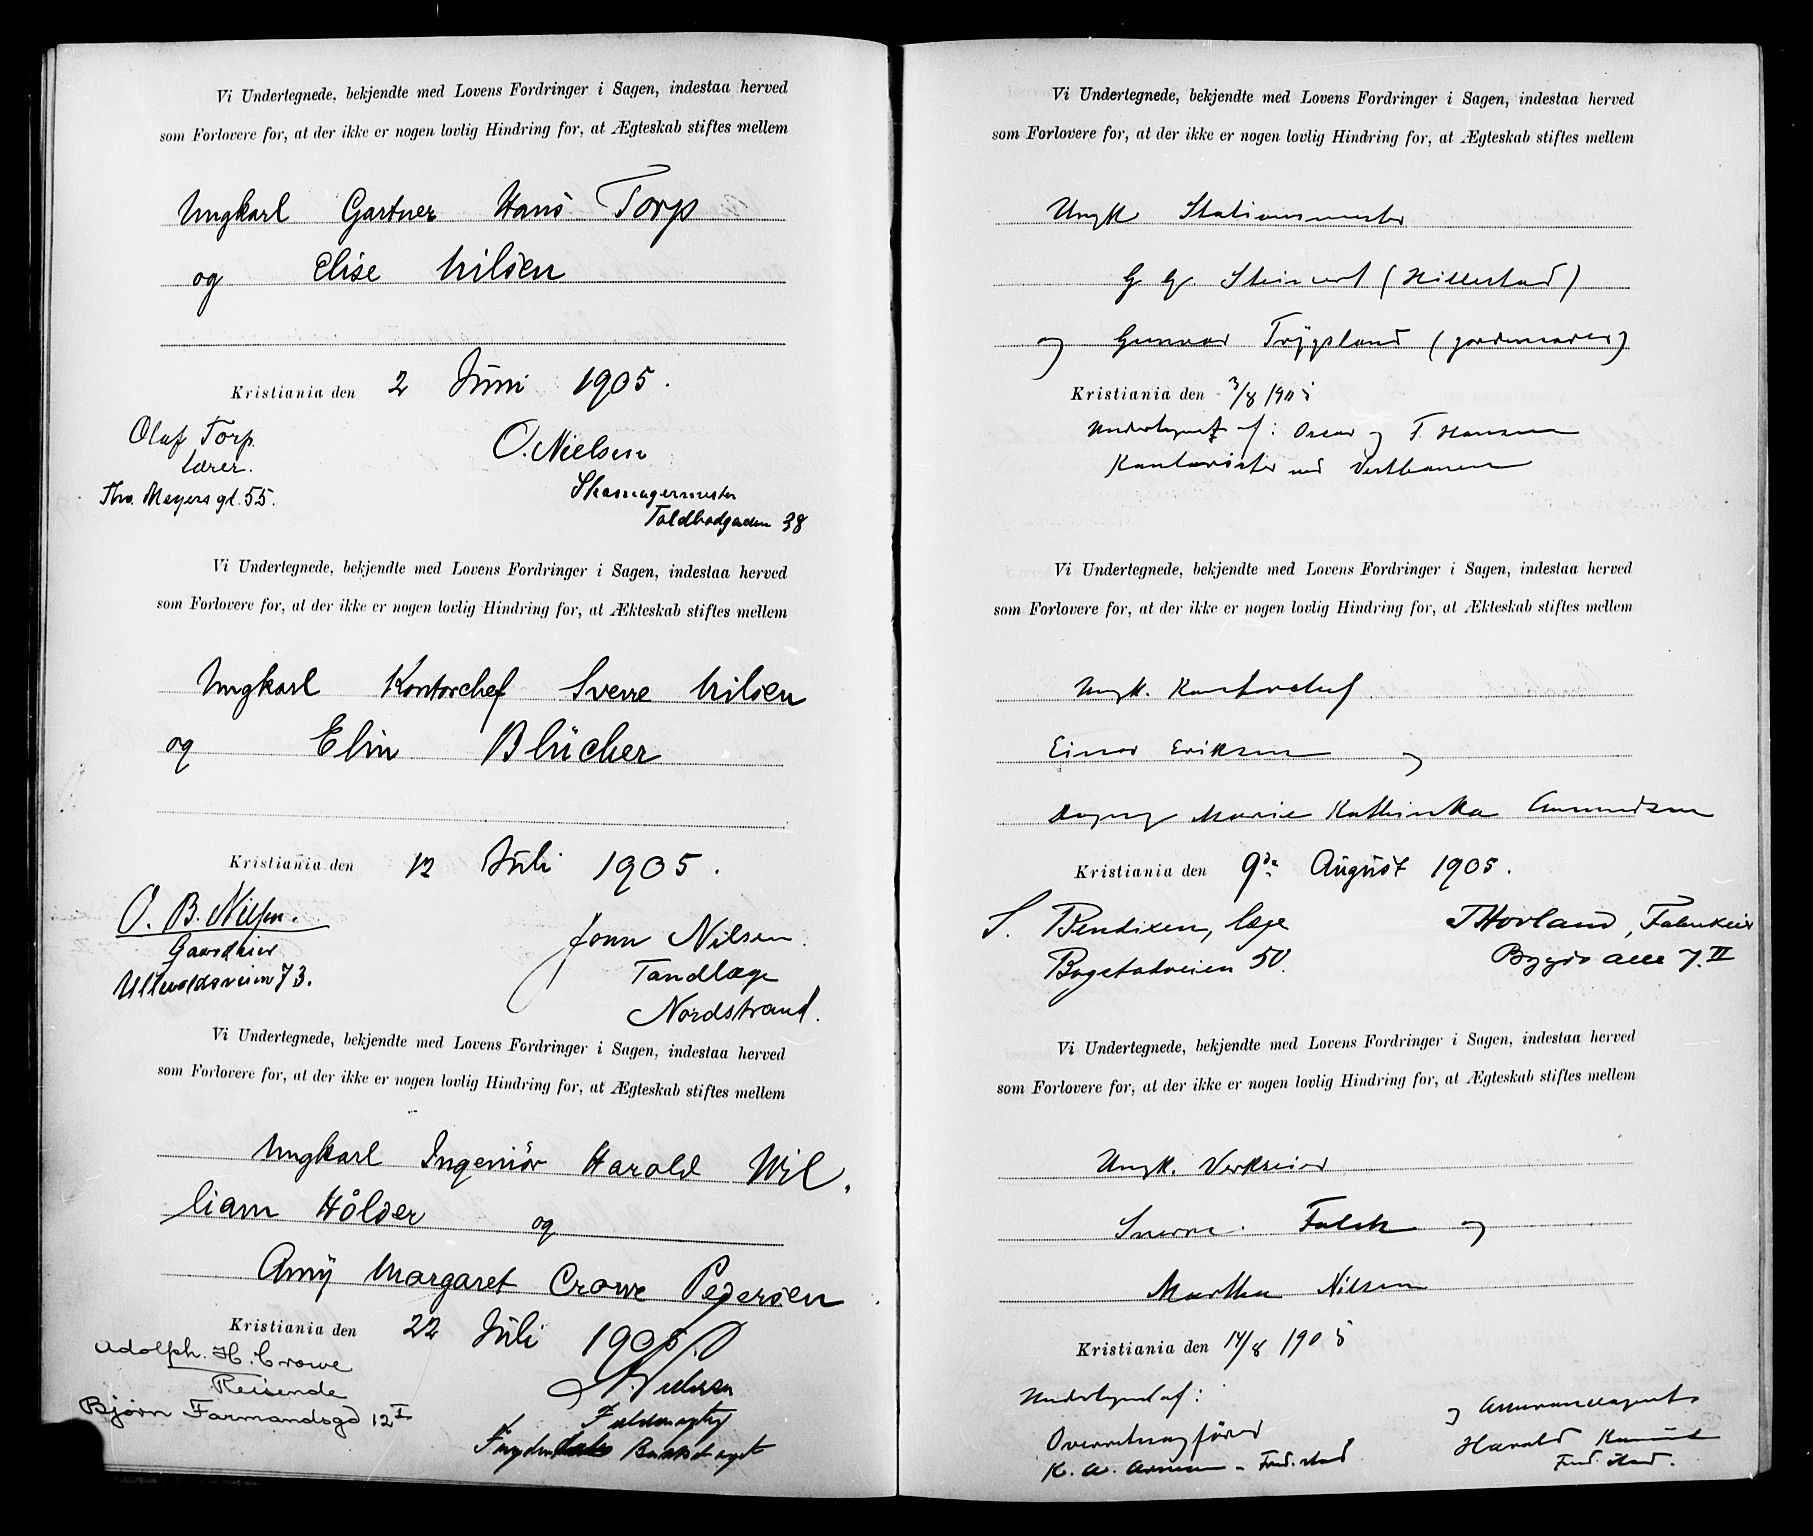 Vi Undertegnede, bekjendte med Lovens Fordringer i Sagen, indestaa herved
som Forlovere for, at der ikke er nogen lovlig Hindring for, at Ægteskab stiftes mellem
Ungkarl Gartner Hans Torp
og Elise Nilsen
Kristiania den 2 Juni 1905.
Olaf Torp.
lærer.
Ths. Meyers gt. 55.
O. Nielsen
Skomagermester
Toldbodgaden 38
Vi Undertegnede, bekjendte med Lovens Fordringer i Sagen, indestaa herved
som Forlovere for, at der ikke er nogen lovlig Hindring for, at Ækteskab stiftes mellem
Ungkarl Kontorchef Sverre Nilsen
og Elin Blücher
Kristiania den 12 Juli 1905.
O. B. Nilsen.
Gaardeier
Ullevoldsveien 73.
John Nilsen.
Tandlæge
Nordstrand.
Vi Undertegnede, bekjendte med Lovens Fordringer i Sagen, indestaa herved
som Forlovere for, at der ikke er nogen lovlig Hindring for, at Ægteskab stiftes mellem
Ungkarl Ingeniör Harold Wil
liam Hólder og
Amy Margaret Crowe Pedersen
Kristiania den 22 Juli 1905.
Adolph. H. Crowe
Reisende
Bjørn Farmandsgd 12 I
Vi Undertegnede, bekjendte med Lovens Fordringer i Sagen, indestaa herved
som Forlovere for, at der ikke er nogen lovlig Hindring for, at Ægteskab stiftes mellem
Ungk Stationsmester
G G Steinert (Hillestad)
og Gunvor Trygsland (jordemoder)
Kristiania den 3/8 1905
Undertegnet af: Oscar og T. Hansen
Kontorister ved Vestbanen
Vi Undertegnede, bekjendte med Lovens Fordringer i Sagen, indestaa herved
som Forlovere for, at der ikke er nogen lovlig Hindring for, at Ækteskab stiftes mellem
Ungk. Kontorchef
Einar Eriksen og
Dagny Marie Kathinka Amundsen
Kristiania den 9de August 1905.
S. Bendixen, læge
Bogstadveien 50.
T Hovland, Fabrikeier
Bygdø alle 7. II
Vi Undertegnede, bekjendte med Lovens Fordringer i Sagen, indestaa herved
som Forlovere for, at der ikke er nogen lovlig Hindring for, at Ægteskab stiftes mellem
Ungk. Verkseier
Sverre Falch og
Martha Nilsen
Kristiania den 14/8 1905
Undertegnet af:
Overretssagfører
K. A. - Fred. stad
og Assuranceagent
Harald
Fred. stad.